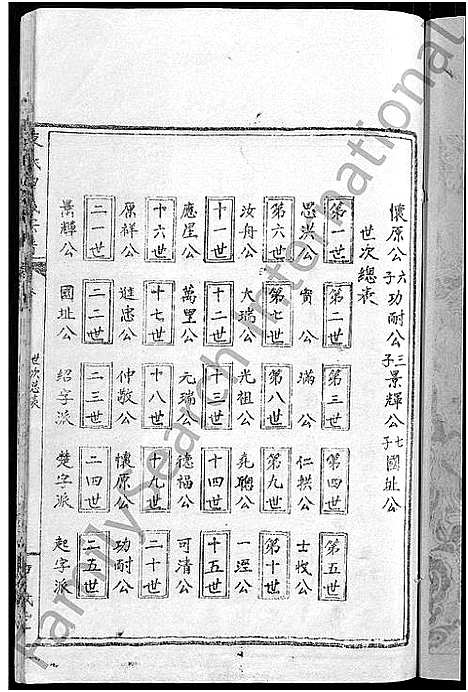 懷原公六子功耐公三子景輝公七子國址公
世次總表
第一世 第二世 第三世 第四世 第五世
思洪公 賓公 滿公 仁拱公 士忮公
第六世 第七世 第八世 第九世 第十世
汝舟公 大瑞公 光祖公 堯聰公 一涇公
十一世 十二世 十三世 十四世 十五世
應星公 萬里公 元瑞公 德福公 可清公
十六世 十七世 十八世 十九世 二十世
原祥公 進忠公 仲敬公 懷原公 功耐公
二一世 二二世 二三世 二四世 二五世
景輝公 國址公 紹字派 楚字派 起字派
世次總表
FamilySearch International